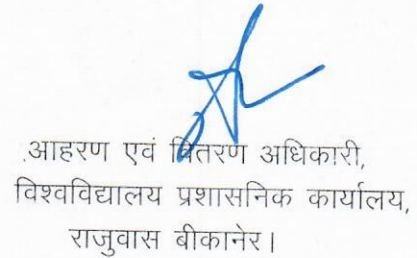 आहरण एवं वितरण अधिकारी,
विश्वविद्यालय प्रशासनिक कार्यालय,
राजुवास बीकानेर।